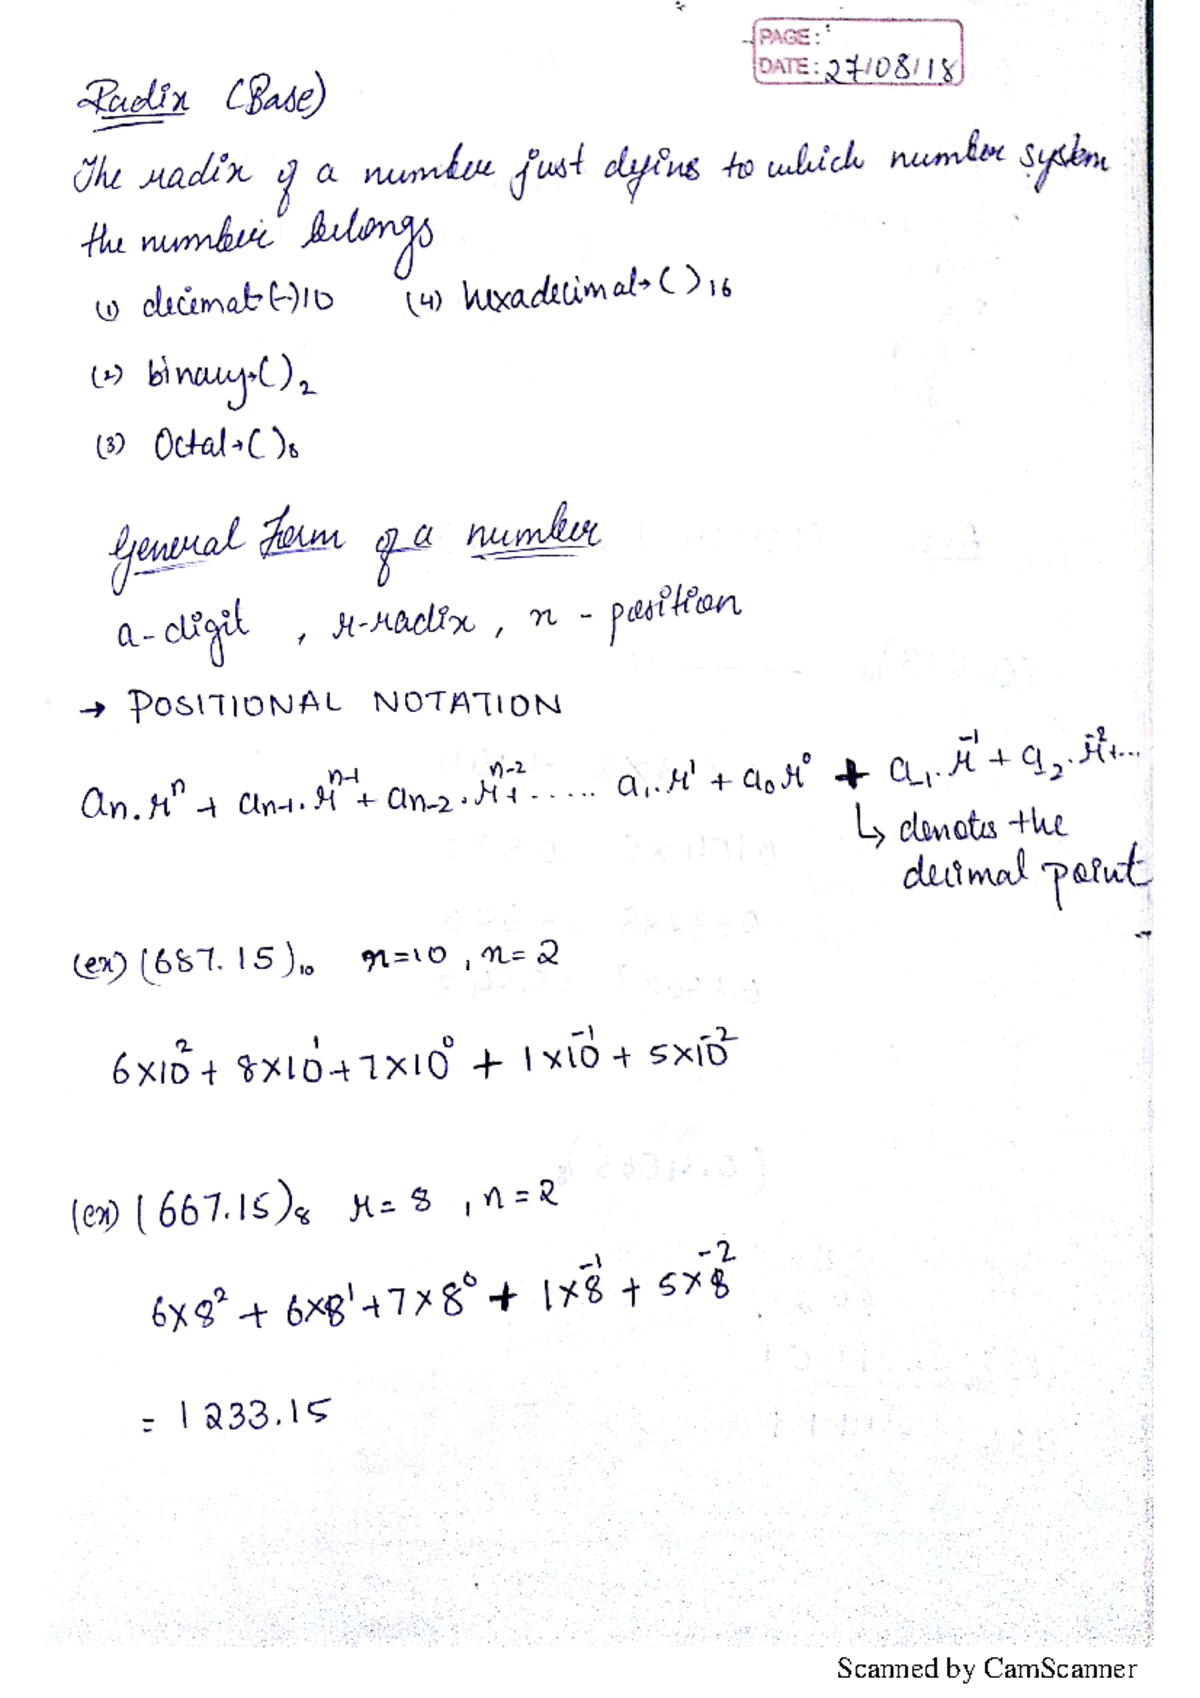 PAGE:
DATE: 27/08/18
Radix (Base)
The radix of a number just defins to which number system
the number belongs
(1) decimal→(-)10 (4) hexadecimal→( )16
(2) binary→( )2
(3) Octal→( )8
General Form of a number
a-digit , r-radix , n - position
→ POSITIONAL NOTATION
an.r^n + an-1.r^n-1 + an-2.r^n-2 + ...... a1.r^1 + a0r^0 + a-1.r^-1 + a-2.r^-2+...
↳ denotes the
decimal point
(ex) (687.15)10 r=10 , n=2
6x10^2 + 8x10^1 + 7x10^0 + 1x10^-1 + 5x10^-2
(ex) (667.15)8 r=8 , n=2
6x8^2 + 6x8^1 + 7x8^0 + 1x8^-1 + 5x8^-2
= 1233.15
Scanned by CamScanner